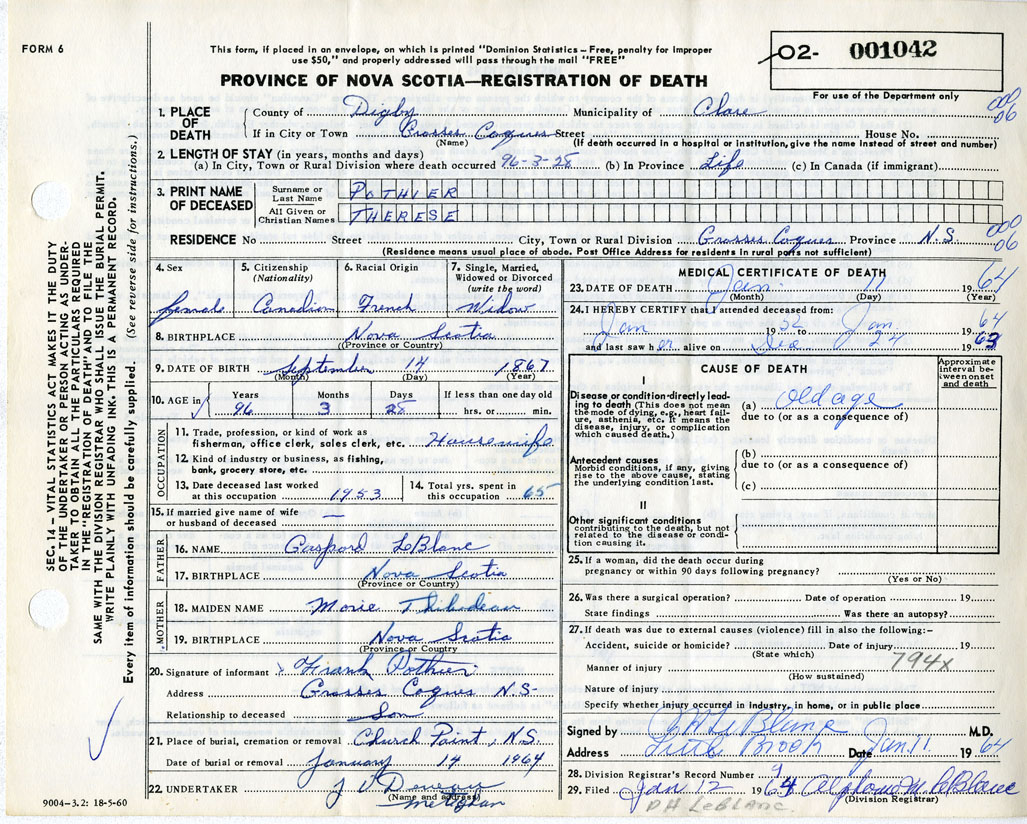 FORM 6
This form, if placed in an envelope, on which is printed "Dominion Statistics – Free, penalty for improper
use $50," and properly addressed will pass through the mail "FREE"
O2- 001042
PROVINCE OF NOVA SCOTIA—REGISTRATION OF DEATH
For use of the Department only
SEC. 14 – VITAL STATISTICS ACT MAKES IT THE DUTY
OF THE UNDERTAKER OR PERSON ACTING AS UNDER-
TAKER TO OBTAIN ALL THE PARTICULARS REQUIRED
IN THE "REGISTRATION OF DEATH" AND TO FILE THE
SAME WITH THE DIVISION REGISTRAR WHO SHALL ISSUE THE BURIAL PERMIT.
WRITE PLAINLY WITH UNFADING INK. THIS IS A PERMANENT RECORD.
Every item of information should be carefully supplied. (See reverse side for instructions.)
1. PLACE OF DEATH
County of Digby Municipality of Clare
000
06
If in City or Town Grosses Coques Street House No.
(Name) (If death occurred in a hospital or institution, give the name instead of street and number)
2. LENGTH OF STAY (in years, months and days)
(a) In City, Town or Rural Division where death occurred 96-3-28 (b) In Province Life (c) In Canada (if immigrant)
3. PRINT NAME OF DECEASED
Surname or Last Name POTHIER
All Given or Christian Names THERESE
000
06
RESIDENCE No Street City, Town or Rural Division Grosses Coques Province N.S.
(Residence means usual place of abode. Post Office Address for residents in rural parts not sufficient)
4. Sex female
5. Citizenship (Nationality) Canadian
6. Racial Origin French
7. Single, Married, Widowed or Divorced (write the word) Widow
8. BIRTHPLACE Nova Scotia
(Province or Country)
9. DATE OF BIRTH September 14 1867
(Month) (Day) (Year)
10. AGE in Years 96 Months 3 Days 28 If less than one day old hrs. or min.
OCCUPATION
11. Trade, profession, or kind of work as
fisherman, office clerk, sales clerk, etc. Housewife
12. Kind of industry or business, as fishing,
bank, grocery store, etc.
13. Date deceased last worked
at this occupation 1953
14. Total yrs. spent in
this occupation 65
15. If married give name of wife
or husband of deceased —
FATHER
16. NAME Gaspard LeBlanc
17. BIRTHPLACE Nova Scotia
(Province or Country)
MOTHER
18. MAIDEN NAME Marie Thibodeau
19. BIRTHPLACE Nova Scotia
(Province or Country)
20. Signature of informant Frank Pothier
Address Grosses Coques N.S-
Relationship to deceased Son
21. Place of burial, cremation or removal Church Point, N.S.
Date of burial or removal January 14 1964
22. UNDERTAKER
(Name and address)
9004–3.2: 18-5-60
MEDICAL CERTIFICATE OF DEATH
23. DATE OF DEATH Jan. 11 1964
(Month) (Day) (Year)
24. I HEREBY CERTIFY that I attended deceased from:
Jan 19 to Jan. 19 64
and last saw her alive on Dec 24 1963
CAUSE OF DEATH
Approximate interval between onset and death
I
Disease or condition directly lead-
ing to death (This does not mean
the mode of dying, e.g., heart fail-
ure, asthenia, etc. It means the
disease, injury, or complication
which caused death.)
(a) Old age
due to (or as a consequence of)
Antecedent causes
Morbid conditions, if any, giving
rise to the above cause, stating
the underlying condition last.
(b)
due to (or as a consequence of)
(c)
II
Other significant conditions
contributing to the death, but not
related to the disease or condi-
tion causing it.
25. If a woman, did the death occur during
pregnancy or within 90 days following pregnancy?
(Yes or No)
26. Was there a surgical operation? Date of operation 19
State findings Was there an autopsy?
27. If death was due to external causes (violence) fill in also the following:–
Accident, suicide or homicide? Date of injury 19
(State which)
794x
Manner of injury
(How sustained)
Nature of injury
Specify whether injury occurred in industry, in home, or in public place
Signed by LeBlanc M.D.
Address Little Brook Date Jan 11 1964
28. Division Registrar's Record Number 9
29. Filed Jan 12 1964 Alphonse M. LeBlanc
(Division Registrar)
PH LEBLANC.